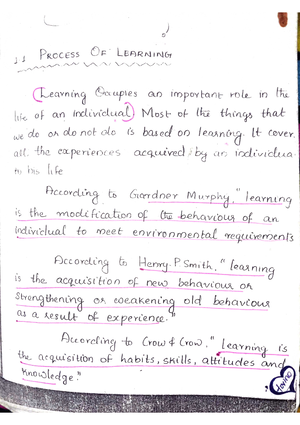 1.1 PROCESS OF LEARNING
Learning Occupies an important role in the
life of an individual) Most of the things that
we do or do not do is based on learning. It cover
all the experiences acquired by an individua
to his life
According to Gardner Murphy, "learning
is the modification of the behaviour of an
individual to meet environmental requirements
According to Henry.P Smith, "learning
is the acquisition of new behaviour or
strengthening or weakening old behaviour
as a result of experience."
According to Crow & Crow, "learning is
the acquisition of habits, skills, attitudes and
knowledge."